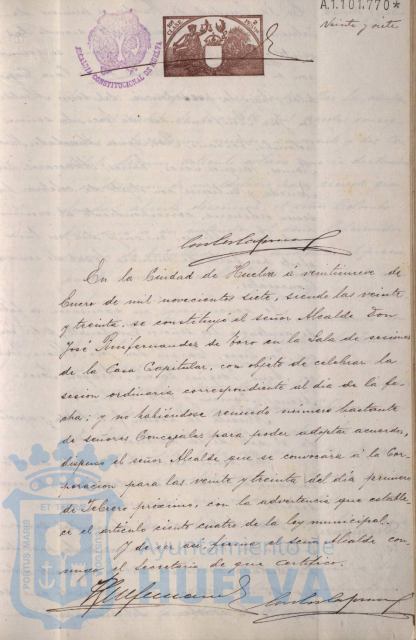 A.1.101.770*
Veinte y siete
ALCALDIA CONSTITUCIONAL DE HUELVA
En la Ciudad de Huelva á veintinueve de
Enero de mil novecientos siete, siendo las veinte
y treinta, se constituyó el señor Alcalde Don
José Purifernandez de Toro en la Sala de sesiones
de la Casa Capitular, con objeto de celebrar la
sesion ordinaria correspondiente al dia de la fe-
cha; y no habiéndose reunido número bastante
de señores Concejales para poder adoptar acuerdos,
dispuso el señor Alcalde que se convocara á la Cor-
poracion para las veinte y treinta del dia primero
de Febrero próximo, con la advertencia que estable-
ce el artículo ciento cuatro de la ley municipal.
Y de ser así, firma el señor Alcalde con-
migo el Secretario de que certifico.
PORTUS MARIS ET
Ayuntamiento de
HUELVA